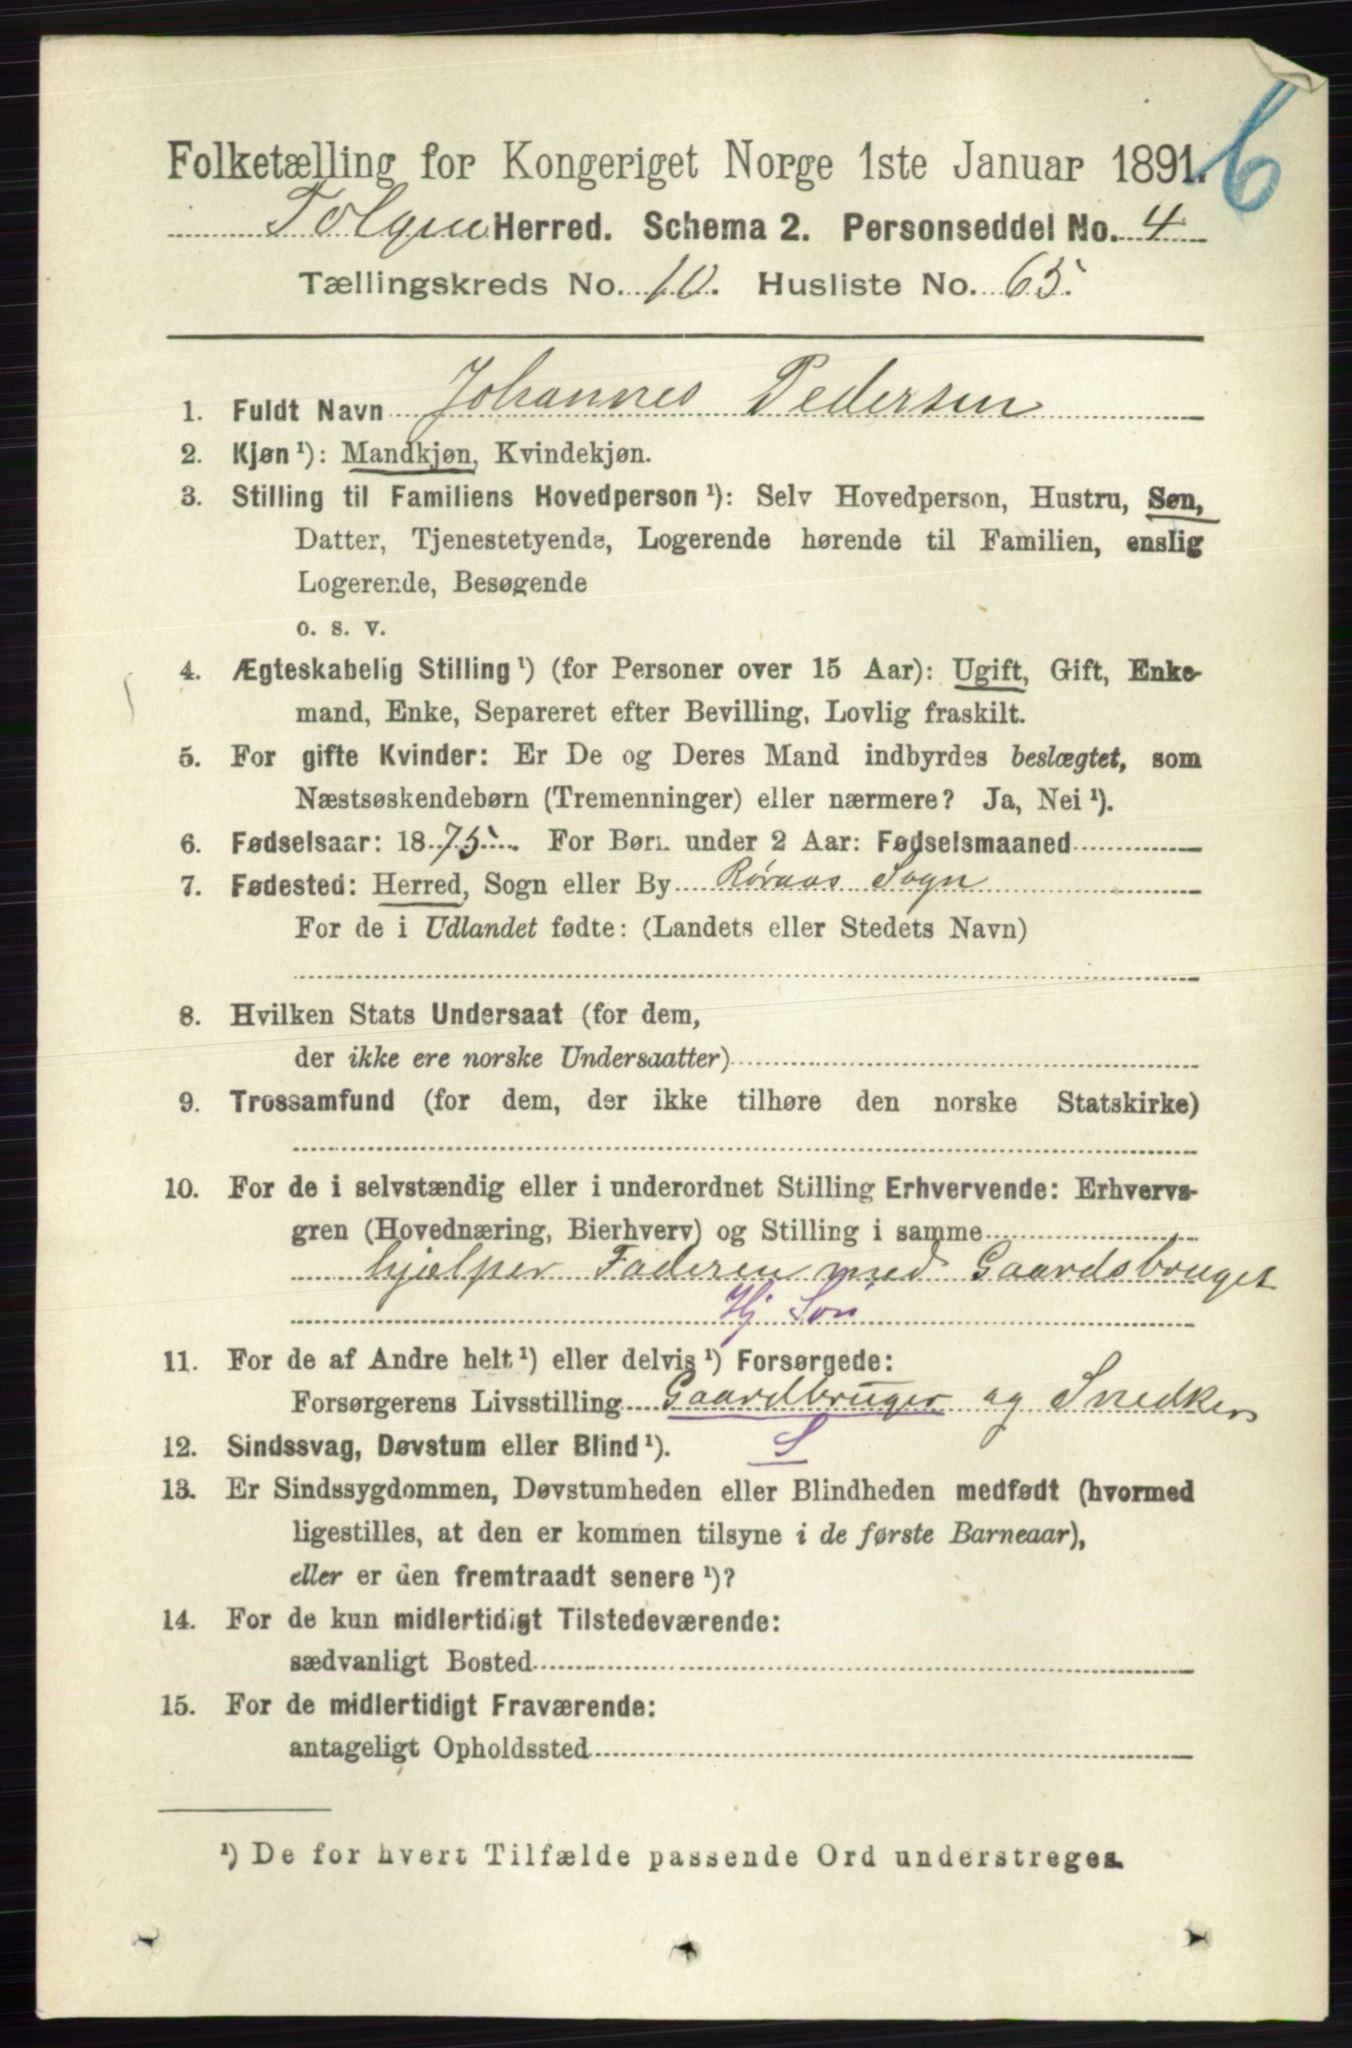 6
Folketælling for Kongeriget Norge 1ste Januar 1891.
Tolgen Herred. Schema 2. Personseddel No. 4
Tællingskreds No. 10. Husliste No. 65.
1. Fuldt Navn Johannes Pedersen
2. Kjøn ¹): Mandkjøn, Kvindekjøn.
3. Stilling til Familiens Hovedperson ¹): Selv Hovedperson, Hustru, Søn,
Datter, Tjenestetyende, Logerende hørende til Familien, enslig
Logerende, Besøgende
o. s. v.
4. Ægteskabelig Stilling ¹) (for Personer over 15 Aar): Ugift, Gift, Enke-
mand, Enke, Separeret efter Bevilling, Lovlig fraskilt.
5. For gifte Kvinder: Er De og Deres Mand indbyrdes beslægtet, som
Næstsøskendebørn (Tremenninger) eller nærmere? Ja, Nei ¹).
6. Fødselsaar: 1875. For Børn under 2 Aar: Fødselsmaaned
7. Fødested: Herred, Sogn eller By Røraas Sogn
For de i Udlandet fødte: (Landets eller Stedets Navn)
8. Hvilken Stats Undersaat (for dem,
der ikke ere norske Undersaatter)
9. Trossamfund (for dem, der ikke tilhøre den norske Statskirke)
10. For de i selvstændig eller i underordnet Stilling Erhvervende: Erhvervs-
gren (Hovednæring, Bierhverv) og Stilling i samme
hjælper Faderen med Gaardsbruget
Hj Søn
11. For de af Andre helt ¹) eller delvis ¹) Forsørgede:
Forsørgerens Livsstilling Gaardbruger og Snedker
12. Sindssvag, Døvstum eller Blind ¹). S
13. Er Sindssygdommen, Døvstumheden eller Blindheden medfødt (hvormed
ligestilles, at den er kommen tilsyne i de første Barneaar),
eller er den fremtraadt senere ¹)?
14. For de kun midlertidigt Tilstedeværende:
sædvanligt Bosted
15. For de midlertidigt Fraværende:
antageligt Opholdssted
¹) De for hvert Tilfælde passende Ord understreges.